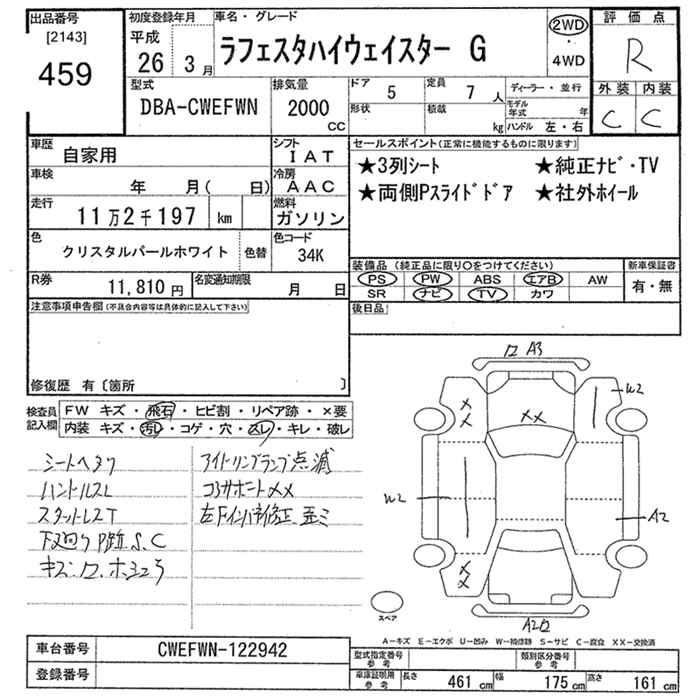 出品番号
[2143]
459
初度登録年月
平成
26 3月
車名・グレード
ラフェスタハイウェイスター G
2WD
・
4WD
評価点
R
外装 内装
C C
型式
DBA-CWEFWN
排気量
2000
CC
ドア
5
定員
7 人
形状
積載
kg
ディーラー・並行
モデル年式 年
ハンドル 左・右
車歴
自家用
シフト
IAT
車検
年 月( 日)
冷房
AAC
走行
11万2千197 km
燃料
ガソリン
色
クリスタルパールホワイト
色替
色コード
34K
R券
11,810 円
名変通知期限
月 日
セールスポイント(正常に機能するものに限ります)
★3列シート ★純正ナビ・TV
★両側Pスライドドア ★社外ホイール
装備品 (純正品に限り○をつけてください)
PS PW ABS エアB AW
SR ナビ TV カワ
新車保証書
有・無
後日品
注意事項申告欄(不具合内容等は具体的に記入して下さい)
修復歴 有〔箇所 〕
検査員記入欄
FW キズ・飛石・ヒビ割・リペア跡・×要
内装 キズ・汚レ・コゲ・穴・スレ・キレ・破レ
シートヘタリ
ハンドルスレ
下廻り P錆 S.C
アイドリングランプ点滅
コアサポートXX
ロ A3
W2
XX
XX
XX
W2
A2
A2ロ
スペア
A-キズ E-エクボ U-凹み W-補修跡 S-サビ C-腐食 XX-交換済
車台番号
CWEFWN-122942
登録番号
型式指定番号
参考
類別区分番号
参考
車庫証明用
参考
長さ 461 cm 幅 175 cm 高さ 161 cm